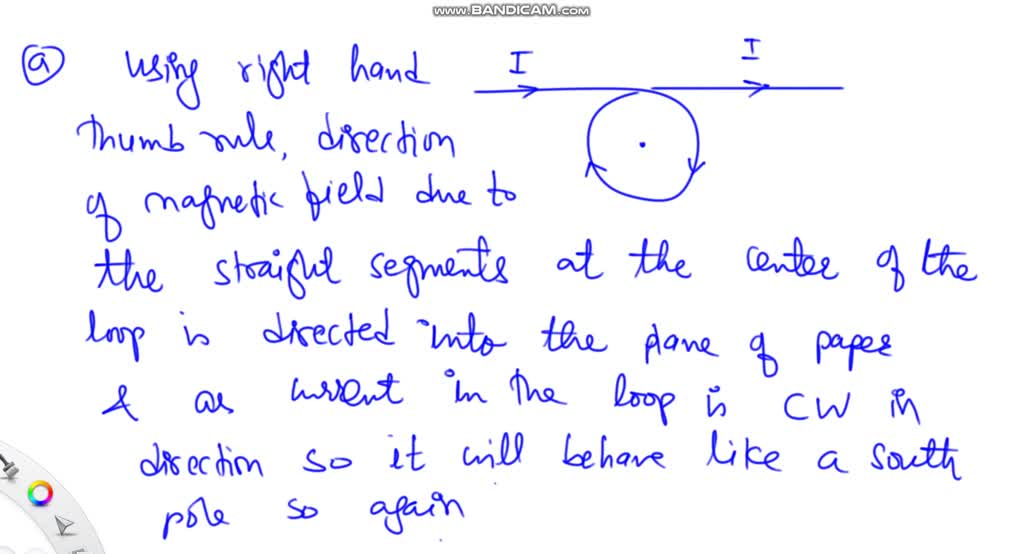 www.BANDICAM.com
a using right hand I I
thumb rule, direction
of magnetic field due to
the straight segments at the center of the
loop is directed into the plane of paper
& as current in the loop is CW in
direction so it will behave like a south
pole so again